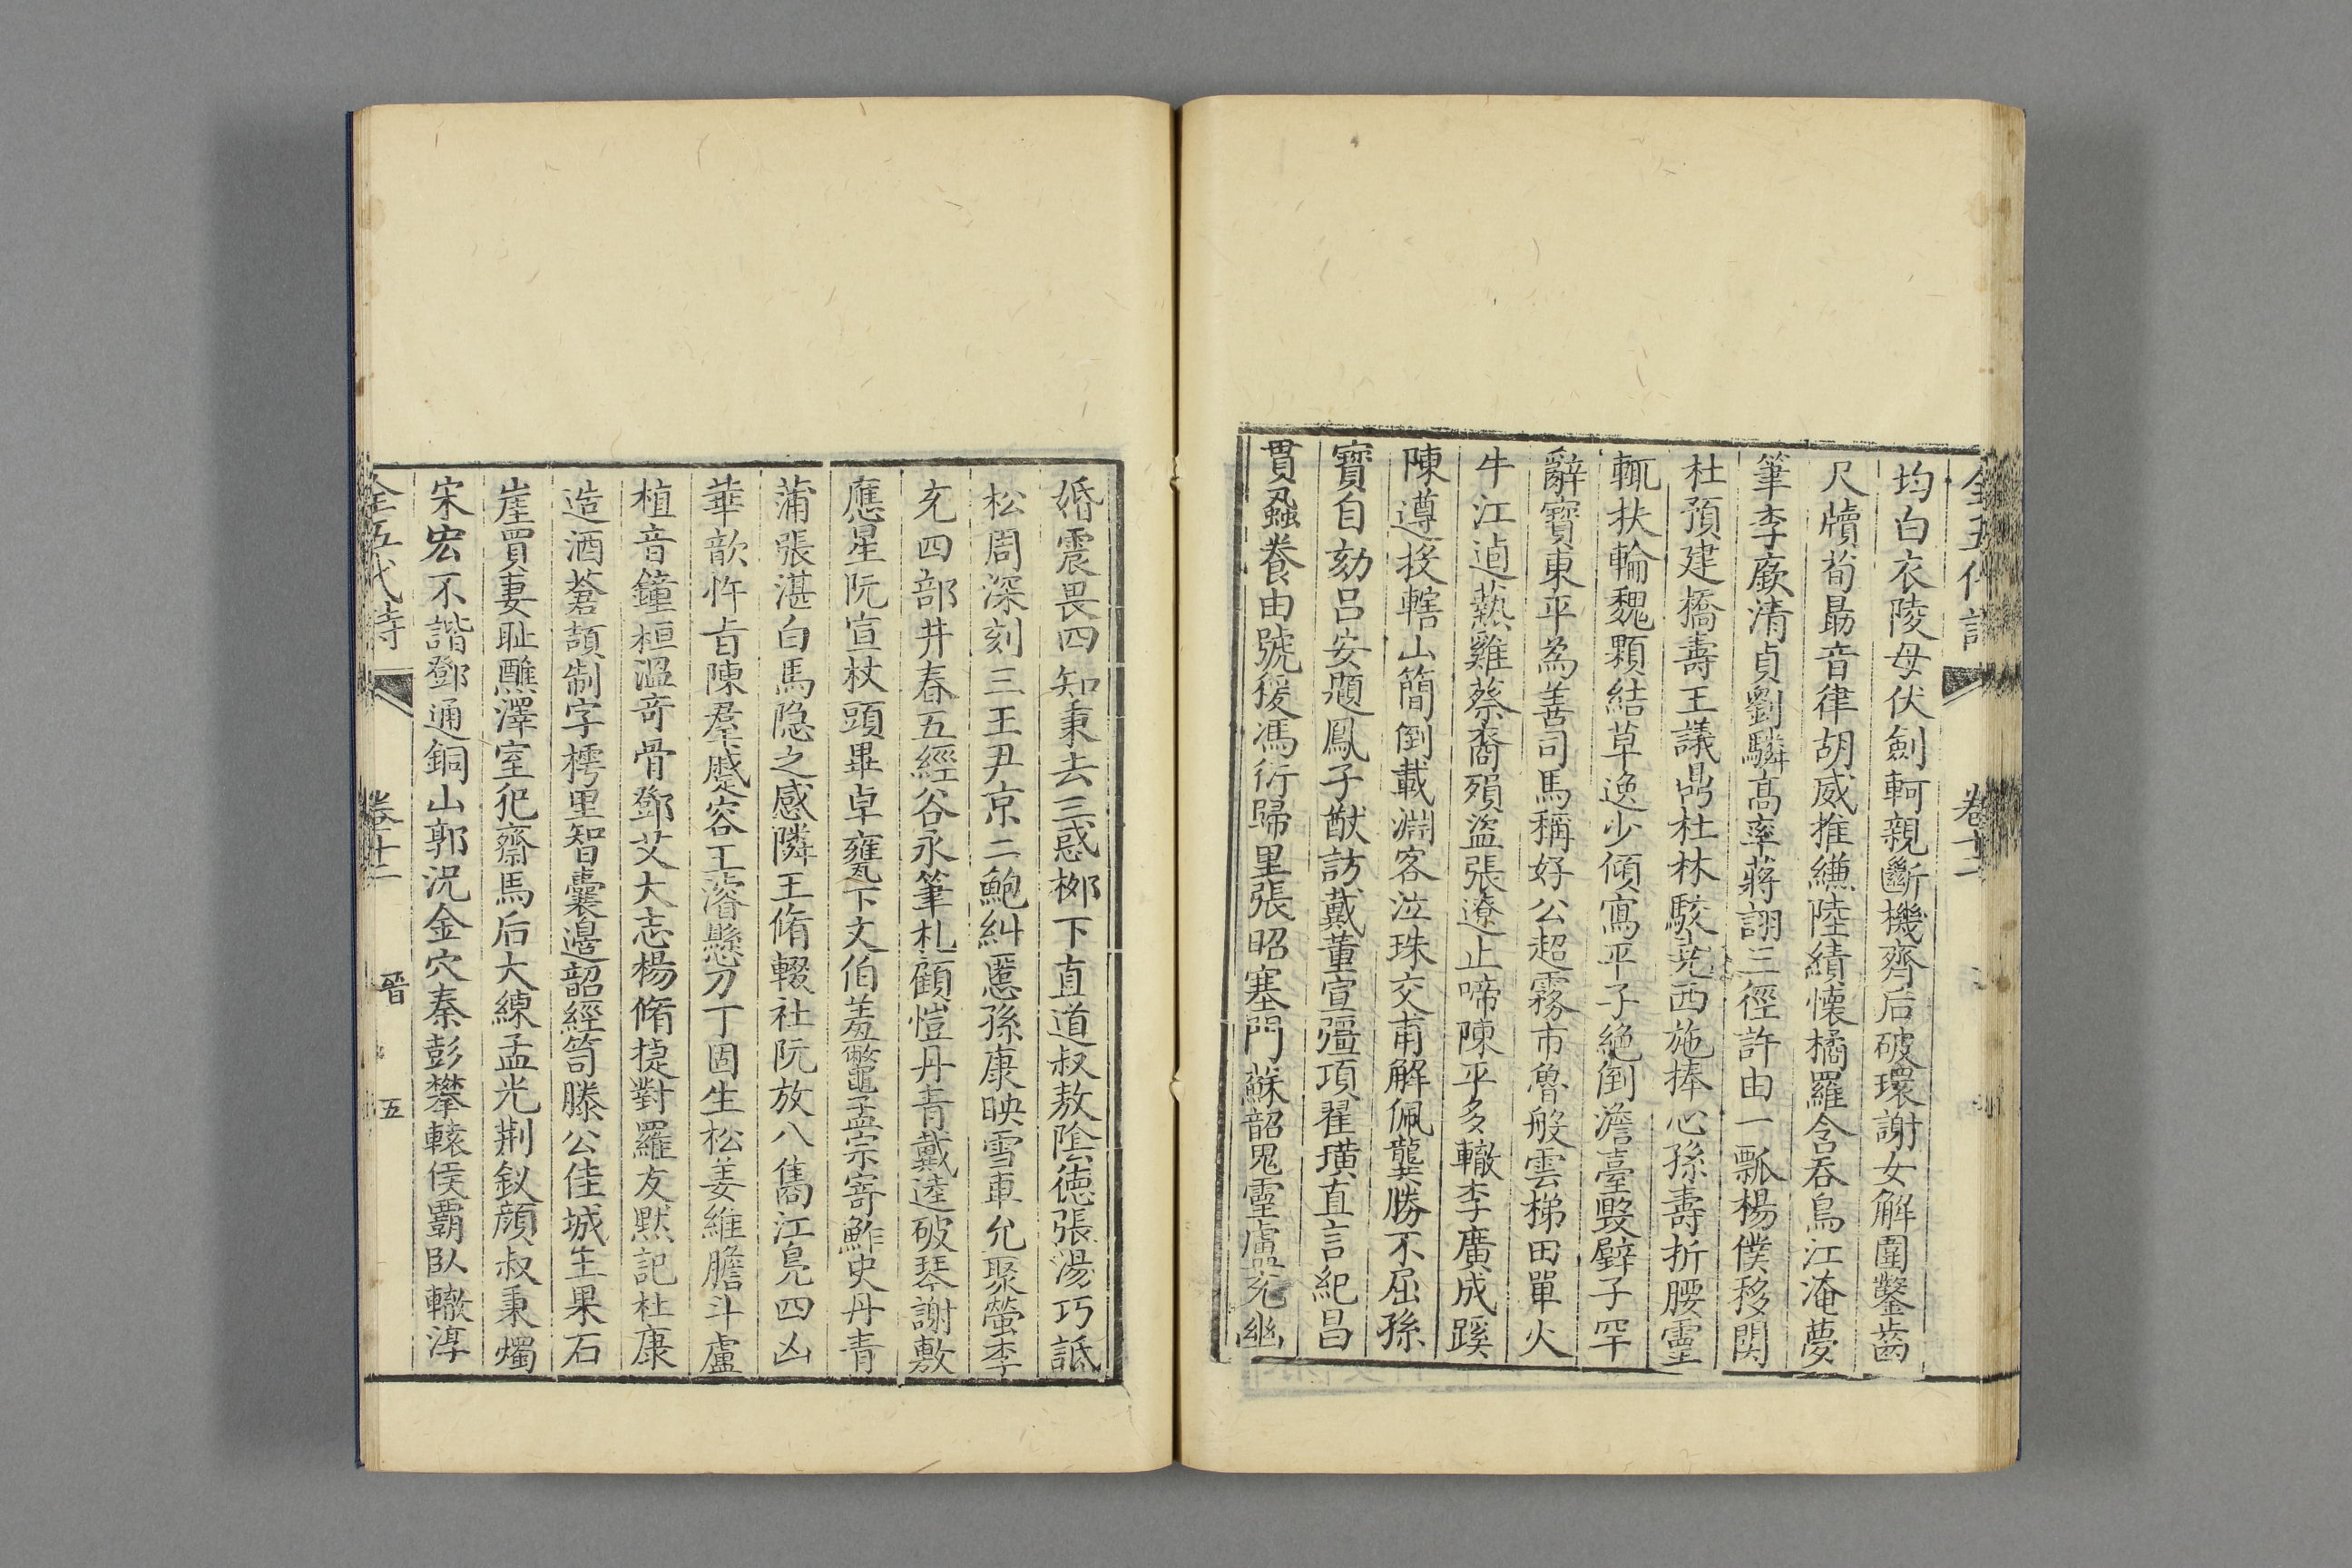 全五代詩 卷十二
均白衣陵母伏劍軻親斷機齊后破環謝女解圍鑿齒
尺牘荀勗音律胡威推縑陸績懷橘羅含吞鳥江淹夢
筆李廞清貞劉驎高率蔣詡三徑許由一瓢楊僕移関
杜預建橋壽王議鼎杜林駮尭西施捧心孫壽折腰靈
輒扶輪魏顆結草逸少傾寫平子絶倒澹臺毀璧子罕
辭寶東平為善司馬稱好公超霧市魯般雲梯田單火
牛江逌爇雞蔡裔殞盜張遼止啼陳平多轍李廣成蹊
陳遵投轄山簡倒載淵客泣珠交甫解佩龔勝不屈孫
寶自劾吕安題鳳子猷訪戴董宣彊項翟璜直言紀昌
貫蝨養由號猨馮衍歸里張昭塞門蘇韶鬼靈盧充幽
婚震畏四知秉去三惑桞下直道叔敖隂徳張湯巧詆
松周深刻三王尹京二鮑糾慝孫康映雪車允聚螢李
充四部井春五經谷永筆札顧愷丹青戴逵破琴謝敷
應星阮宣杖頭畢卓甕下文伯羞鱉孟宗寄鮓史丹青
蒲張湛白馬隐之感隣王脩輟社阮放八雋江臮四凶
華歆忤㫖陳羣蹙容王濬懸刀丁固生松姜維膽斗盧
植音鐘桓溫竒骨鄧艾大志楊脩捷對羅友黙記杜康
造酒蒼頡制字樗里智囊邉韶經笥滕公佳城王果石
崖買妻耻醮澤室犯齋馬后大練孟光荆釵顔叔秉燭
宋宏不諧鄧通銅山郭況金穴秦彭攀轅侯霸臥轍淳
全五代詩 卷十二 晉 五